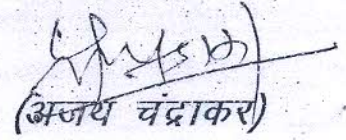 (अजय चंद्राकर)